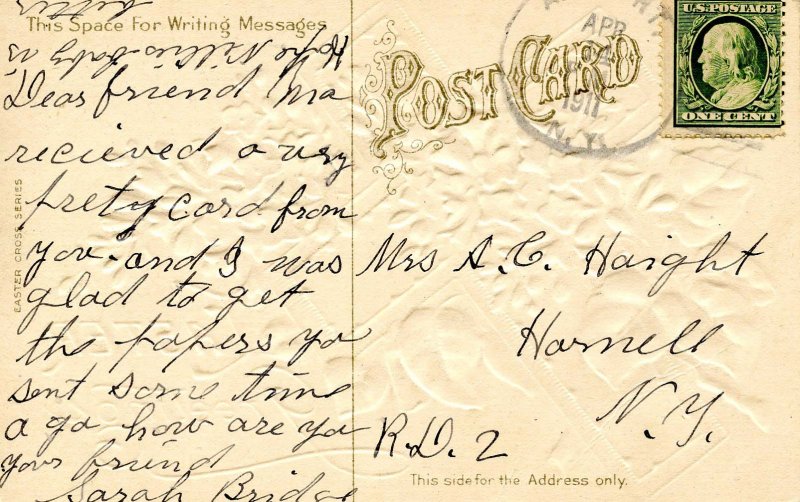 This Space For Writing Messages
Dear friend Ma
recieved a very
prety card from
you. and I was
glad to get
the papers yo
sent some time
a go how are yo
your friend
Sarah Bridge
Hope Nillis baby is
better
EASTER CROSS SERIES
POST CARD
APR
1911
N.Y.
U.S. POSTAGE
ONE CENT
Mrs A. C. Haight
Hornell
N. Y.
R. D. 2
This side for the Address only.